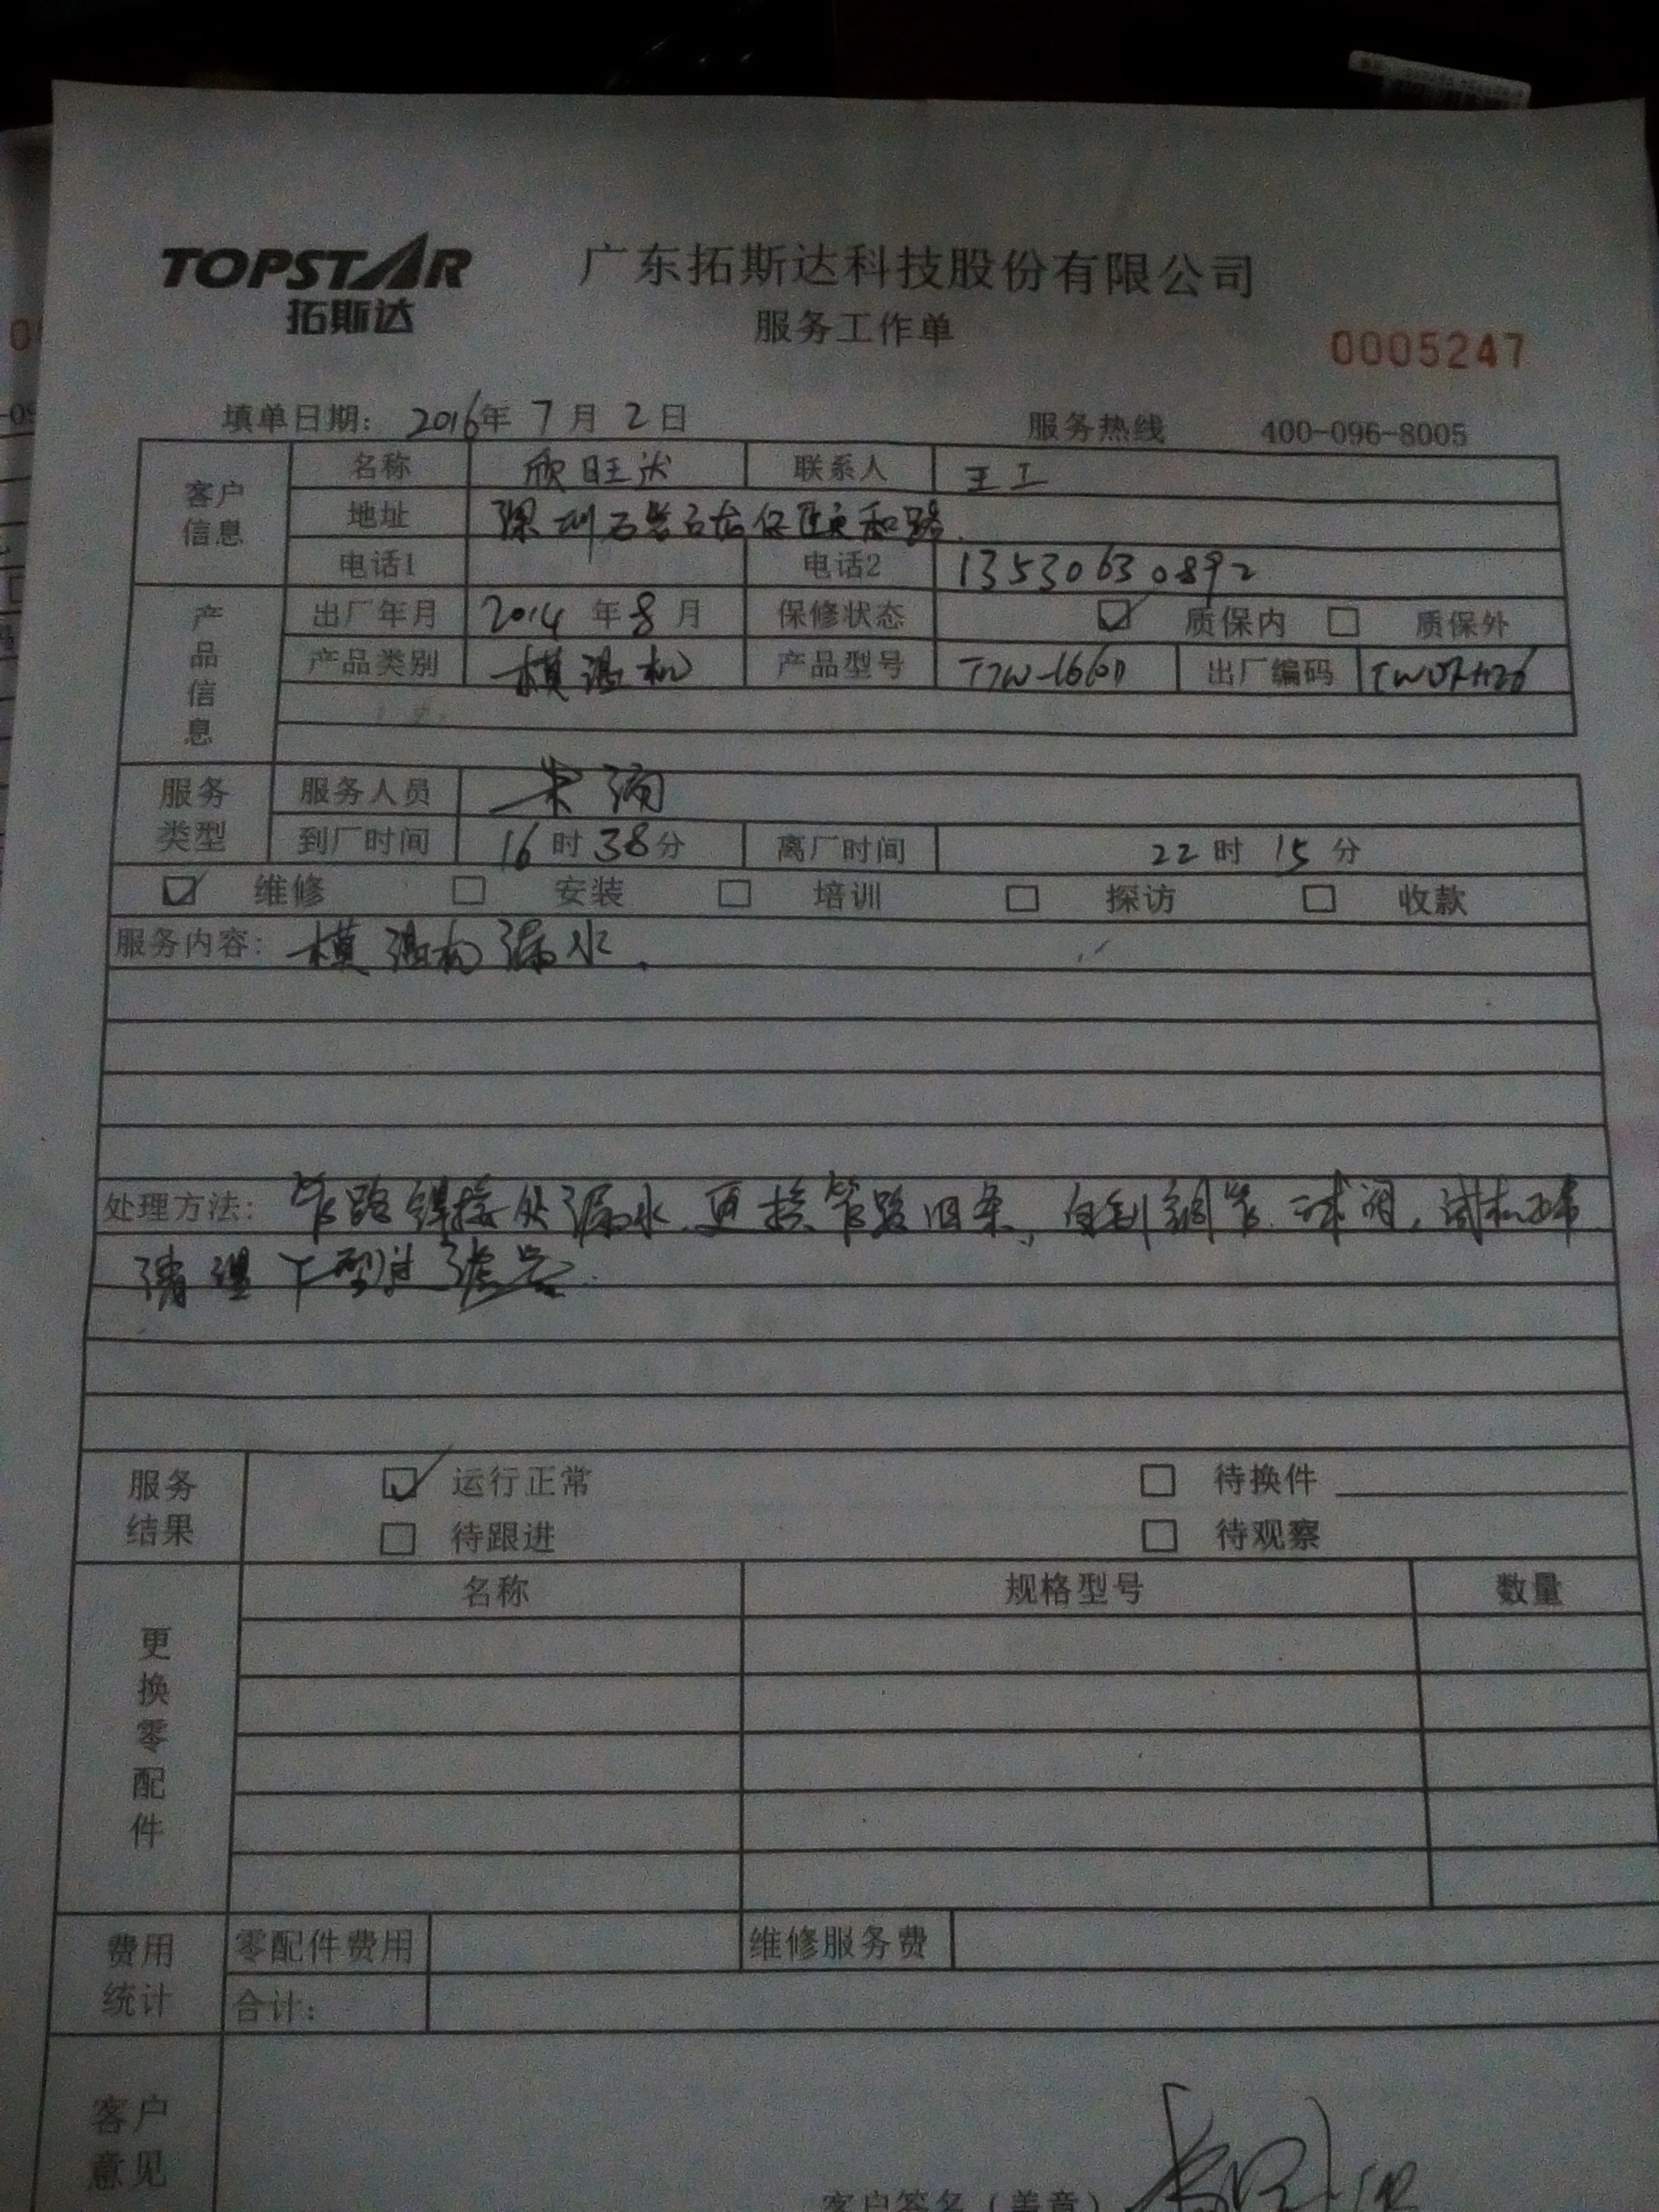 TOPSTAR
拓斯达
广东拓斯达科技股份有限公司
服务工作单
0005247
填单日期: 2016年 7月 2日 服务热线 400-096-8005
客户信息 名称 欣旺达 联系人 王工
地址 深圳石岩石龙仔颐和路
电话1 电话2 13530630892
产品信息 出厂年月 2014年8月 保修状态 质保内 质保外
产品类别 模温机 产品型号 出厂编码
服务类型 服务人员
到厂时间 16时38分 离厂时间 22时15分
维修 安装 培训 探访 收款
服务内容: 模温机漏水.
处理方法: 管路焊接处漏水.更换管路四条, 铜管. 球阀, 试机正常
清理Y型过滤器.
服务结果 运行正常 待换件
待跟进 待观察
更换零配件 名称 规格型号 数量
费用统计 零配件费用 维修服务费
合计:
客户意见
客户签名(盖章)